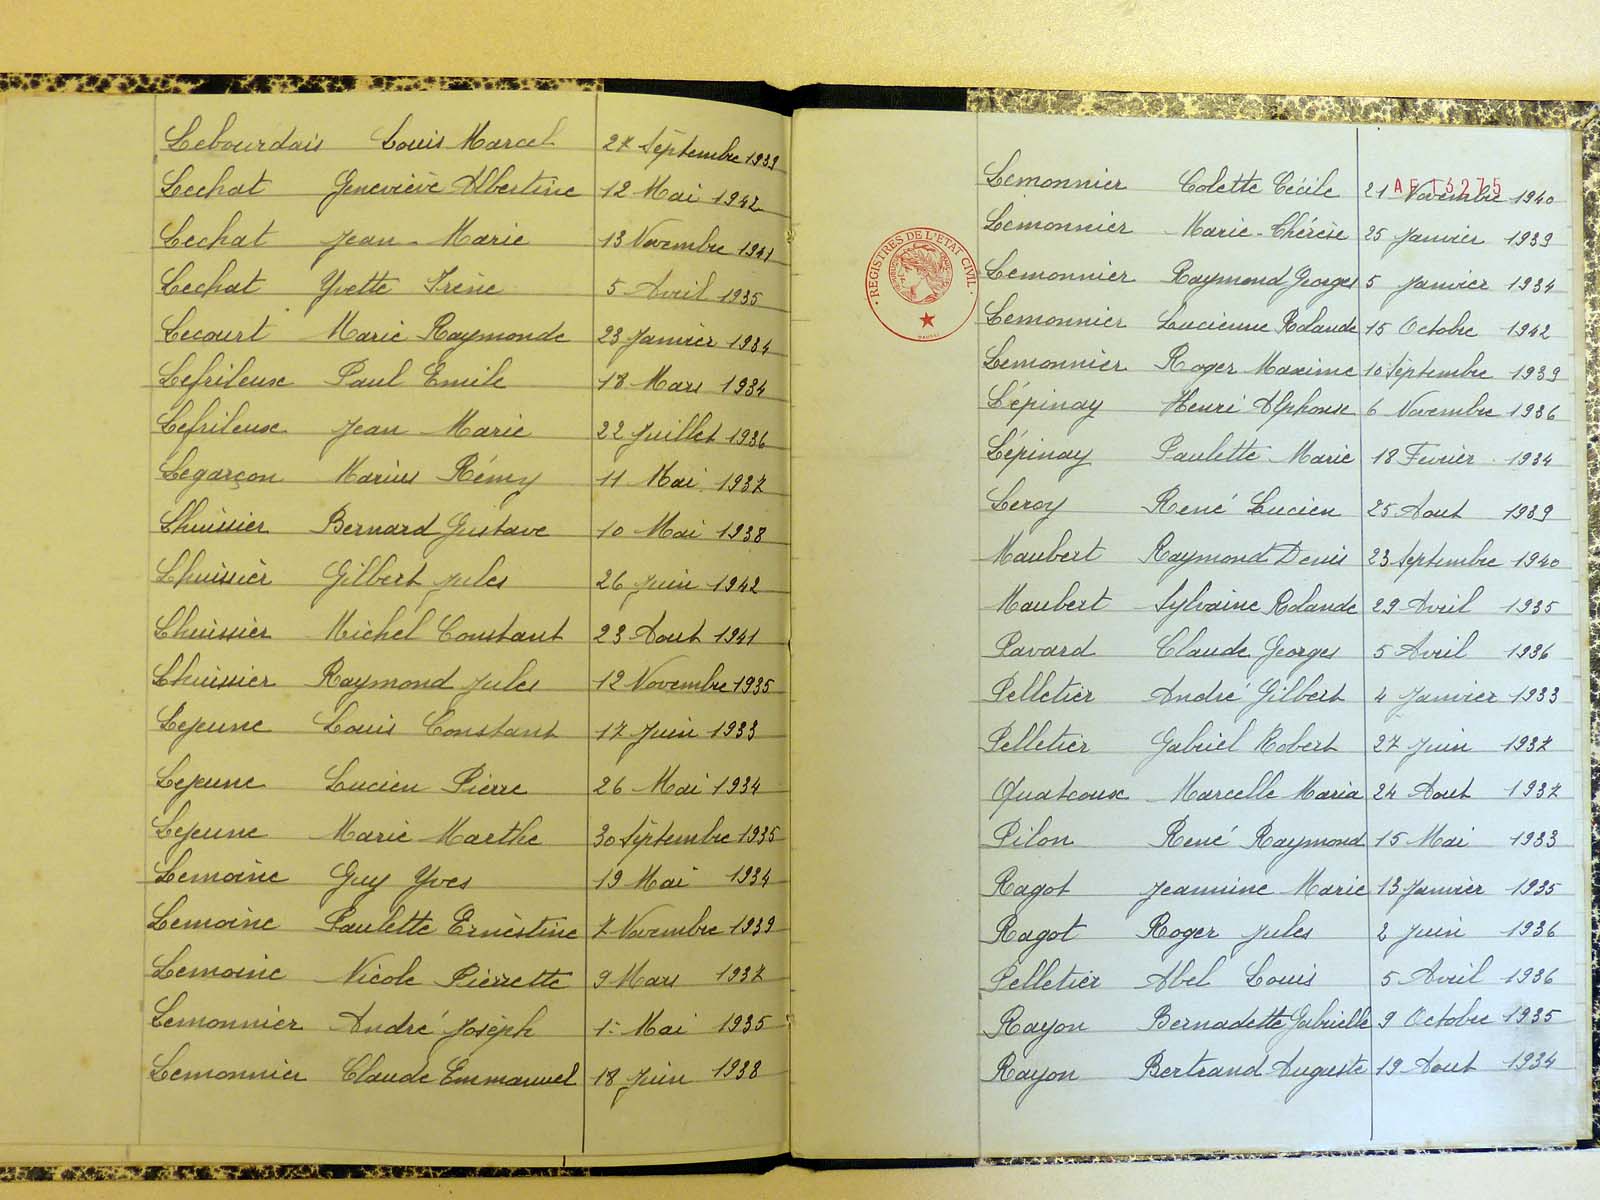 Lebourdais Louis Marcel 27 Septembre 1939
Lechat Geneviève Albertine 12 Mai 1942
Lechat Jean-Marie 13 Novembre 1941
Lechat Yvette Irène 5 Avril 1935
Lecourt Marie Raymonde 23 Janvier 1934
Lefrileuse Paul Emile 18 Mars 1934
Lefrileuse Jean Marie 22 Juillet 1936
Legarçon Marius Rémy 11 Mai 1937
Lhuissier Bernard Gustave 10 Mai 1938
Lhuissier Gilbert Jules 26 Juin 1942
Lhuissier Michel Constant 23 Aout 1941
Lhuissier Raymond Jules 12 Novembre 1935
Lejeune Louis Constant 17 Juin 1933
Lejeune Lucien Pierre 26 Mai 1934
Lejeune Marie Marthe 30 Septembre 1935
Lemoine Guy Yves 19 Mai 1934
Lemoine Paulette Ernestine 7 Novembre 1939
Lemoine Nicole Pierrette 9 Mars 1937
Lemonnier André Joseph 1er Mai 1935
Lemonnier Claude Emmanuel 18 Juin 1938
REGISTRES DE L'ÉTAT CIVIL
AF13275
Lemonnier Colette Cécile 21 Novembre 1940
Lemonnier Marie-Thérèse 25 Janvier 1939
Lemonnier Raymond Georges 5 Janvier 1934
Lemonnier Lucienne Rolande 15 Octobre 1942
Lemonnier Roger Maxime 10 Septembre 1939
Lépinay Henri Alphonse 6 Novembre 1936
Lépinay Paulette Marie 18 Fevrier 1934
Leroy René Lucien 25 Aout 1939
Maubert Raymond Denis 23 Septembre 1940
Maubert Sylvaine Rolande 29 Avril 1935
Pavard Claude Georges 5 Avril 1936
Pelletier André Gilbert 4 Janvier 1933
Pelletier Gabriel Robert 27 Juin 1937
Quatcoux Marcelle Maria 24 Aout 1937
Pilon René Raymond 15 Mai 1933
Ragot Jeannine Marie 13 Janvier 1935
Ragot Roger Jules 2 Juin 1936
Pelletier Abel Louis 5 Avril 1936
Rayon Bernadette Gabrielle 9 Octobre 1935
Rayon Bertrand Auguste 19 Aout 1934